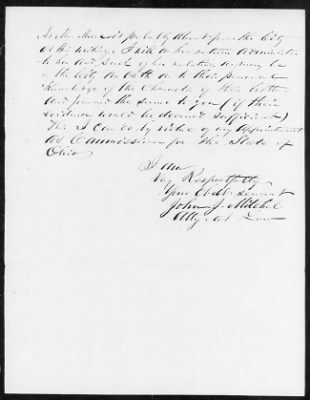 As Mr. is probably absent from the City
at this writing, I will on her return administer
to her and such of her relatives as may be
in the City an oath as to their personal
Knowledge of the Character of their
and forward the same to you (if their
evidence would be deemed sufficient)
This I can do by virtue of my appointment
as Commissioner for the State of
Ohio
I am
Very Respectfully
Your Obdt. Servant
John J. Mitchel
Atty. at Law